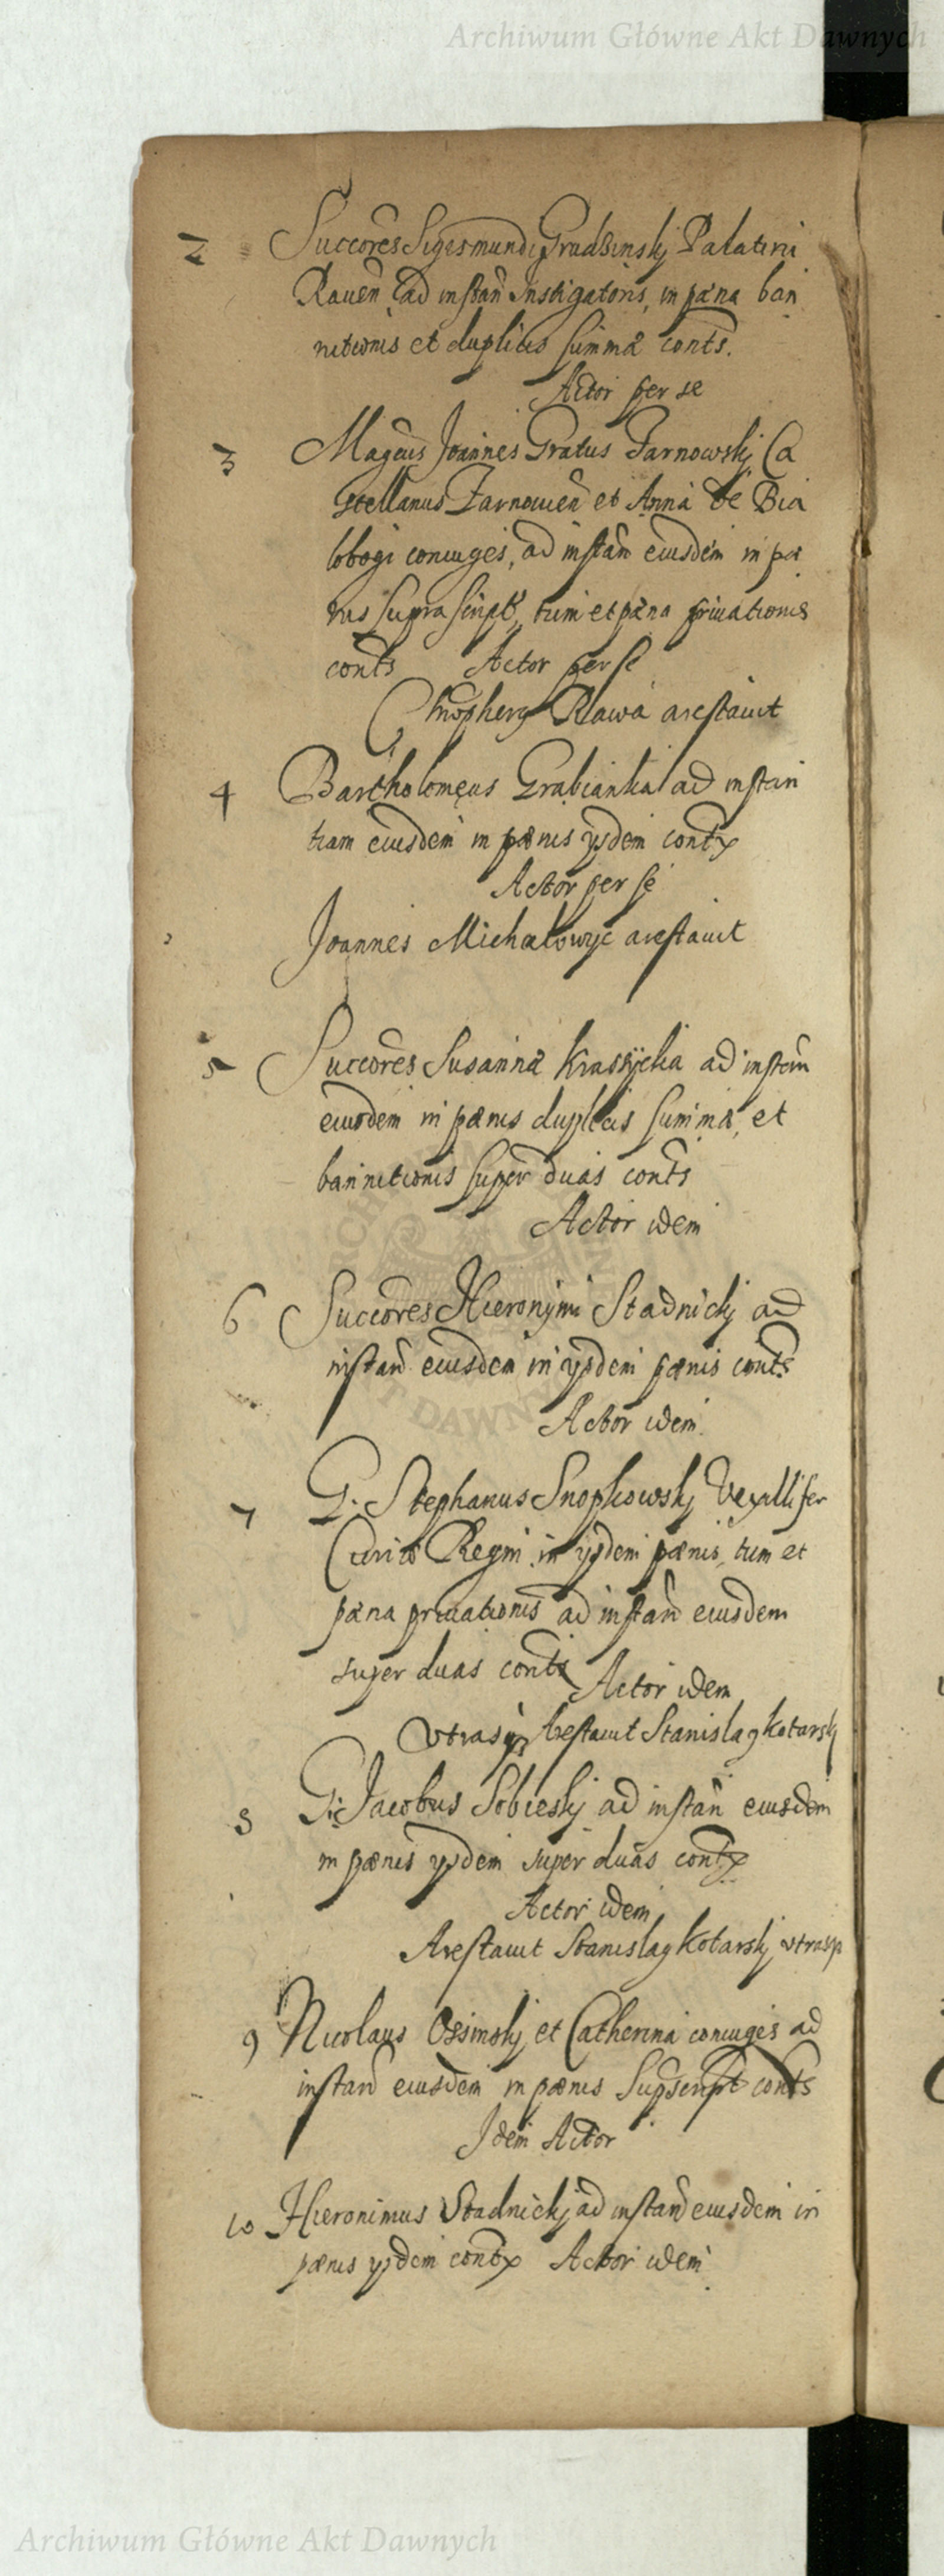 Archiwum Główne Akt Dawnych
2 Succores Sigismundi Grudzinskj Palatini
Rauen ad instan Instigatoris, in pæna ban
nitionis et duplicis summæ conts.
Actor per se
3 Magcus Joannes Gratus Tarnowskj Ca
stellanus Zarnouien et Anna de Bia
lobogi coniuges, ad instan eiusdem in pæ
nis supra script, tum et pæna priuationis
conts Actor per se
Chrophery Rawa arestauit
4 Bartholomęus Grabianka ad instan
tiam eiusdem in pænis ysdem contx
Actor per se
Joannes Michalowic arestauit
5 Succores Susannæ Krasickia ad instan
eiusdem in pænis duplicis summæ, et
bannitionis super duas conts
Actor idem
6 Succores Hieronymi Stadnickj ad
instan eiusdem in ysdem pænis conts
Actor idem
7 G. Stephanus Snopkowskj Vexillifer
Curiæ Regni in ysdem pænis, tum et
pæna priuationis ad instan eiusdem
super duas conts Actor idem
Vtrasq Arestauit Stanislag Kotarskj
8 G. Jacobus Sobieskj ad instan eiusdem
in pænis ysdem super duas contx
Actor idem
Arestauit Stanislag Kotarskj vtrasq
9 Nicolaus Ossinskj et Catherina coniuges ad
instan eiusdem in pænis Supscript conts
Idem Actor
10 Hieronimus Stadnickj ad instan eiusdem in
pænis ysdem contx Actor idem
Archiwum Główne Akt Dawnych